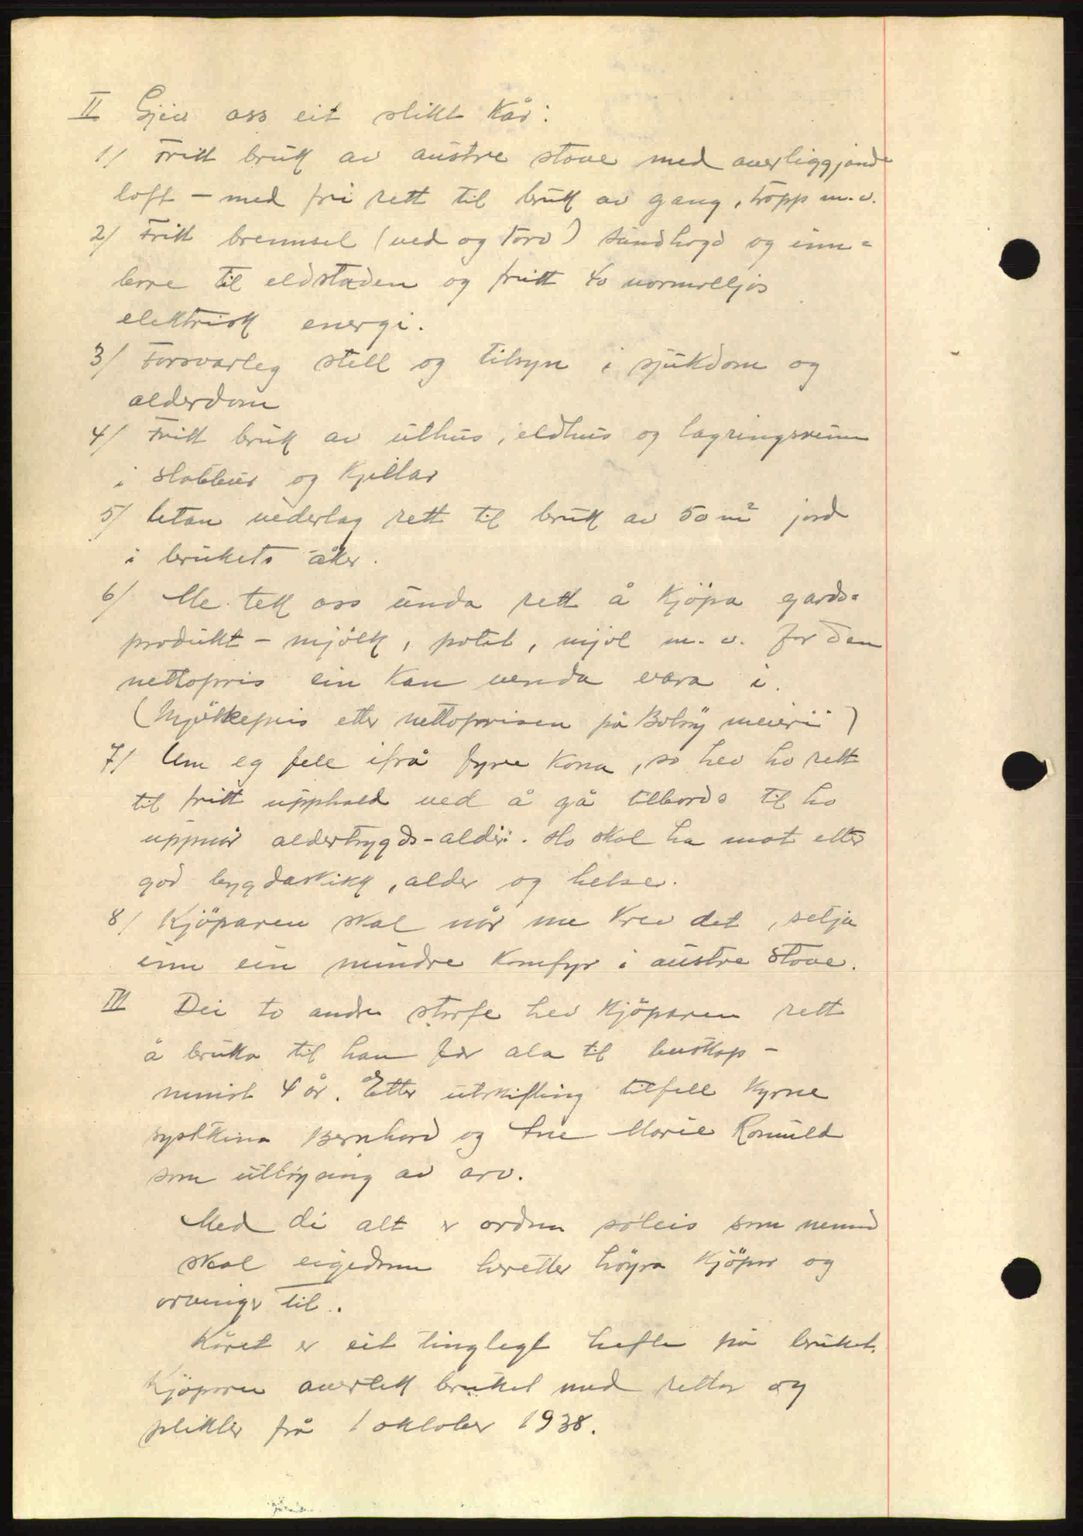 II Gjev oss eit slikt kår:
1/ Fritt bruk av austre stove med averliggjande
loft - med fri rett til bruk av gang, tropp m.v.
2/ Fritt brennsel (ved og torv) smudhogd og inn=
bore til eldstaden og fritt 40 normalljos
elektrisk energi.
3/ Forsvarleg stell og tilsyn i sjukdom og
alderdom
4/ Fritt bruk av uthus, eldhus og lagringsrum
i stabbur og kjellar
5/ Utan vederlag rett til bruk av 50 m² jord
i brukets åker.
6/ Me tek oss unda rett å kjöpa gards=
produkt - mjölk, potet, mjöl m.v. for den
nettopris ein kan venda vara i.
(Mjölkepris etter nettoprisen på Bolsöy meieri)
7/ Um eg fell ifrå fyrre kona, so hev ho rett
til fritt upphald ved å gå tilbords til ho
uppnår alderstrygds-alder. Ho skal ha mat etter
god bygdaskikk, alder og helse.
8/ Kjöparen skal når me krev det, setja
inn ein mindre komfyr i austre stove.
III Dei to andre storfe hev kjöparen rett
å bruka til han fær ala til buskap -
minst 4 år. Etter utskifting tilfell kyrne
syskina Bernhard og Ane Marie Romuld
som utløysing av arv.
Med di alt er ordna soleis som nemnd
skal eigedomen heretter höyra kjöpar og
arvingar til.
Kåret er eit tinglegt hefte på bruket.
Kjöparen avertek bruket med rettar og
plikter frå 1 oktober 1938.